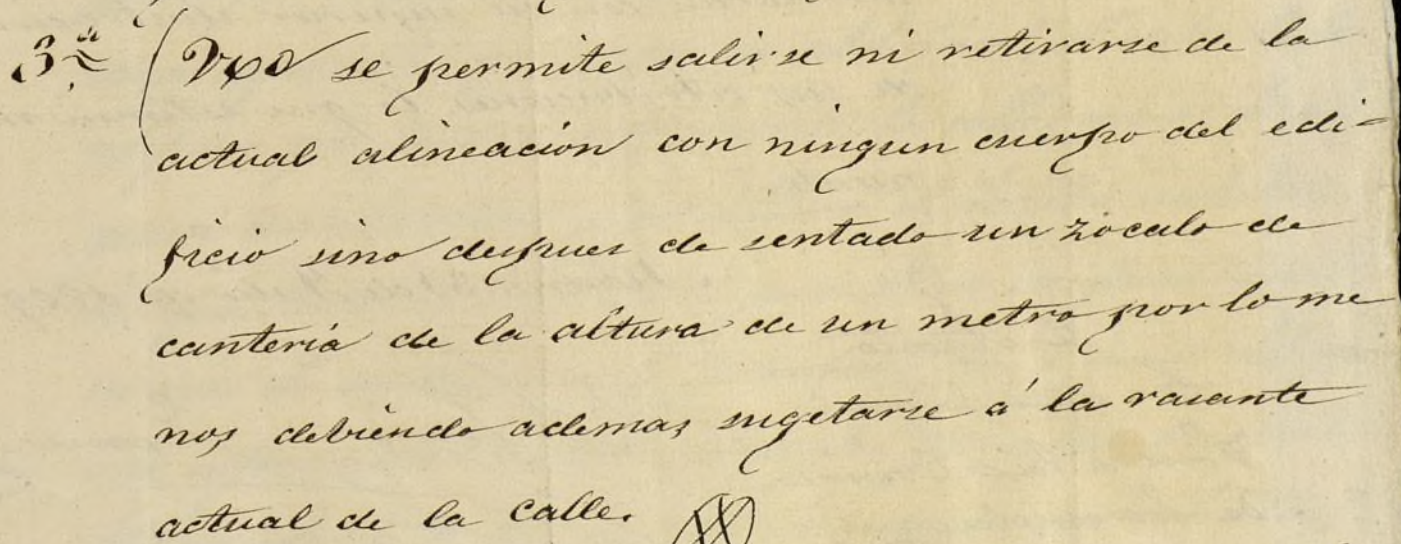 3ª No se permite salirse ni retirarse de la
actual alineación con ningun cuerpo del edi=
ficio sino despues de sentado un zócalo de
cantería de la altura de un metro por lo me
nos debiendo ademas sugetarse á la rasante
actual de la calle.